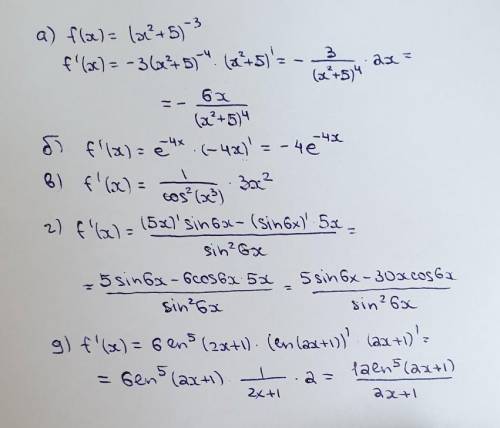 а) f(x) = (x²+5)⁻³
f'(x) = -3(x²+5)⁻⁴ · (x²+5)' = - 3/(x²+5)⁴ · 2x =
= - 6x/(x²+5)⁴
б) f'(x) = e⁻⁴ˣ · (-4x)' = -4e⁻⁴ˣ
в) f'(x) = 1/cos²(x³) · 3x²
г) f'(x) = (5x)' sin6x - (sin6x)' 5x/sin²6x =
= 5sin6x - 6cos6x · 5x/sin²6x = 5sin6x - 30xcos6x/sin²6x
д) f'(x) = 6 ln⁵(2x+1) · (ln(2x+1))' · (2x+1)' =
= 6ln⁵(2x+1) · 1/2x+1 · 2 = 12ln⁵(2x+1)/2x+1